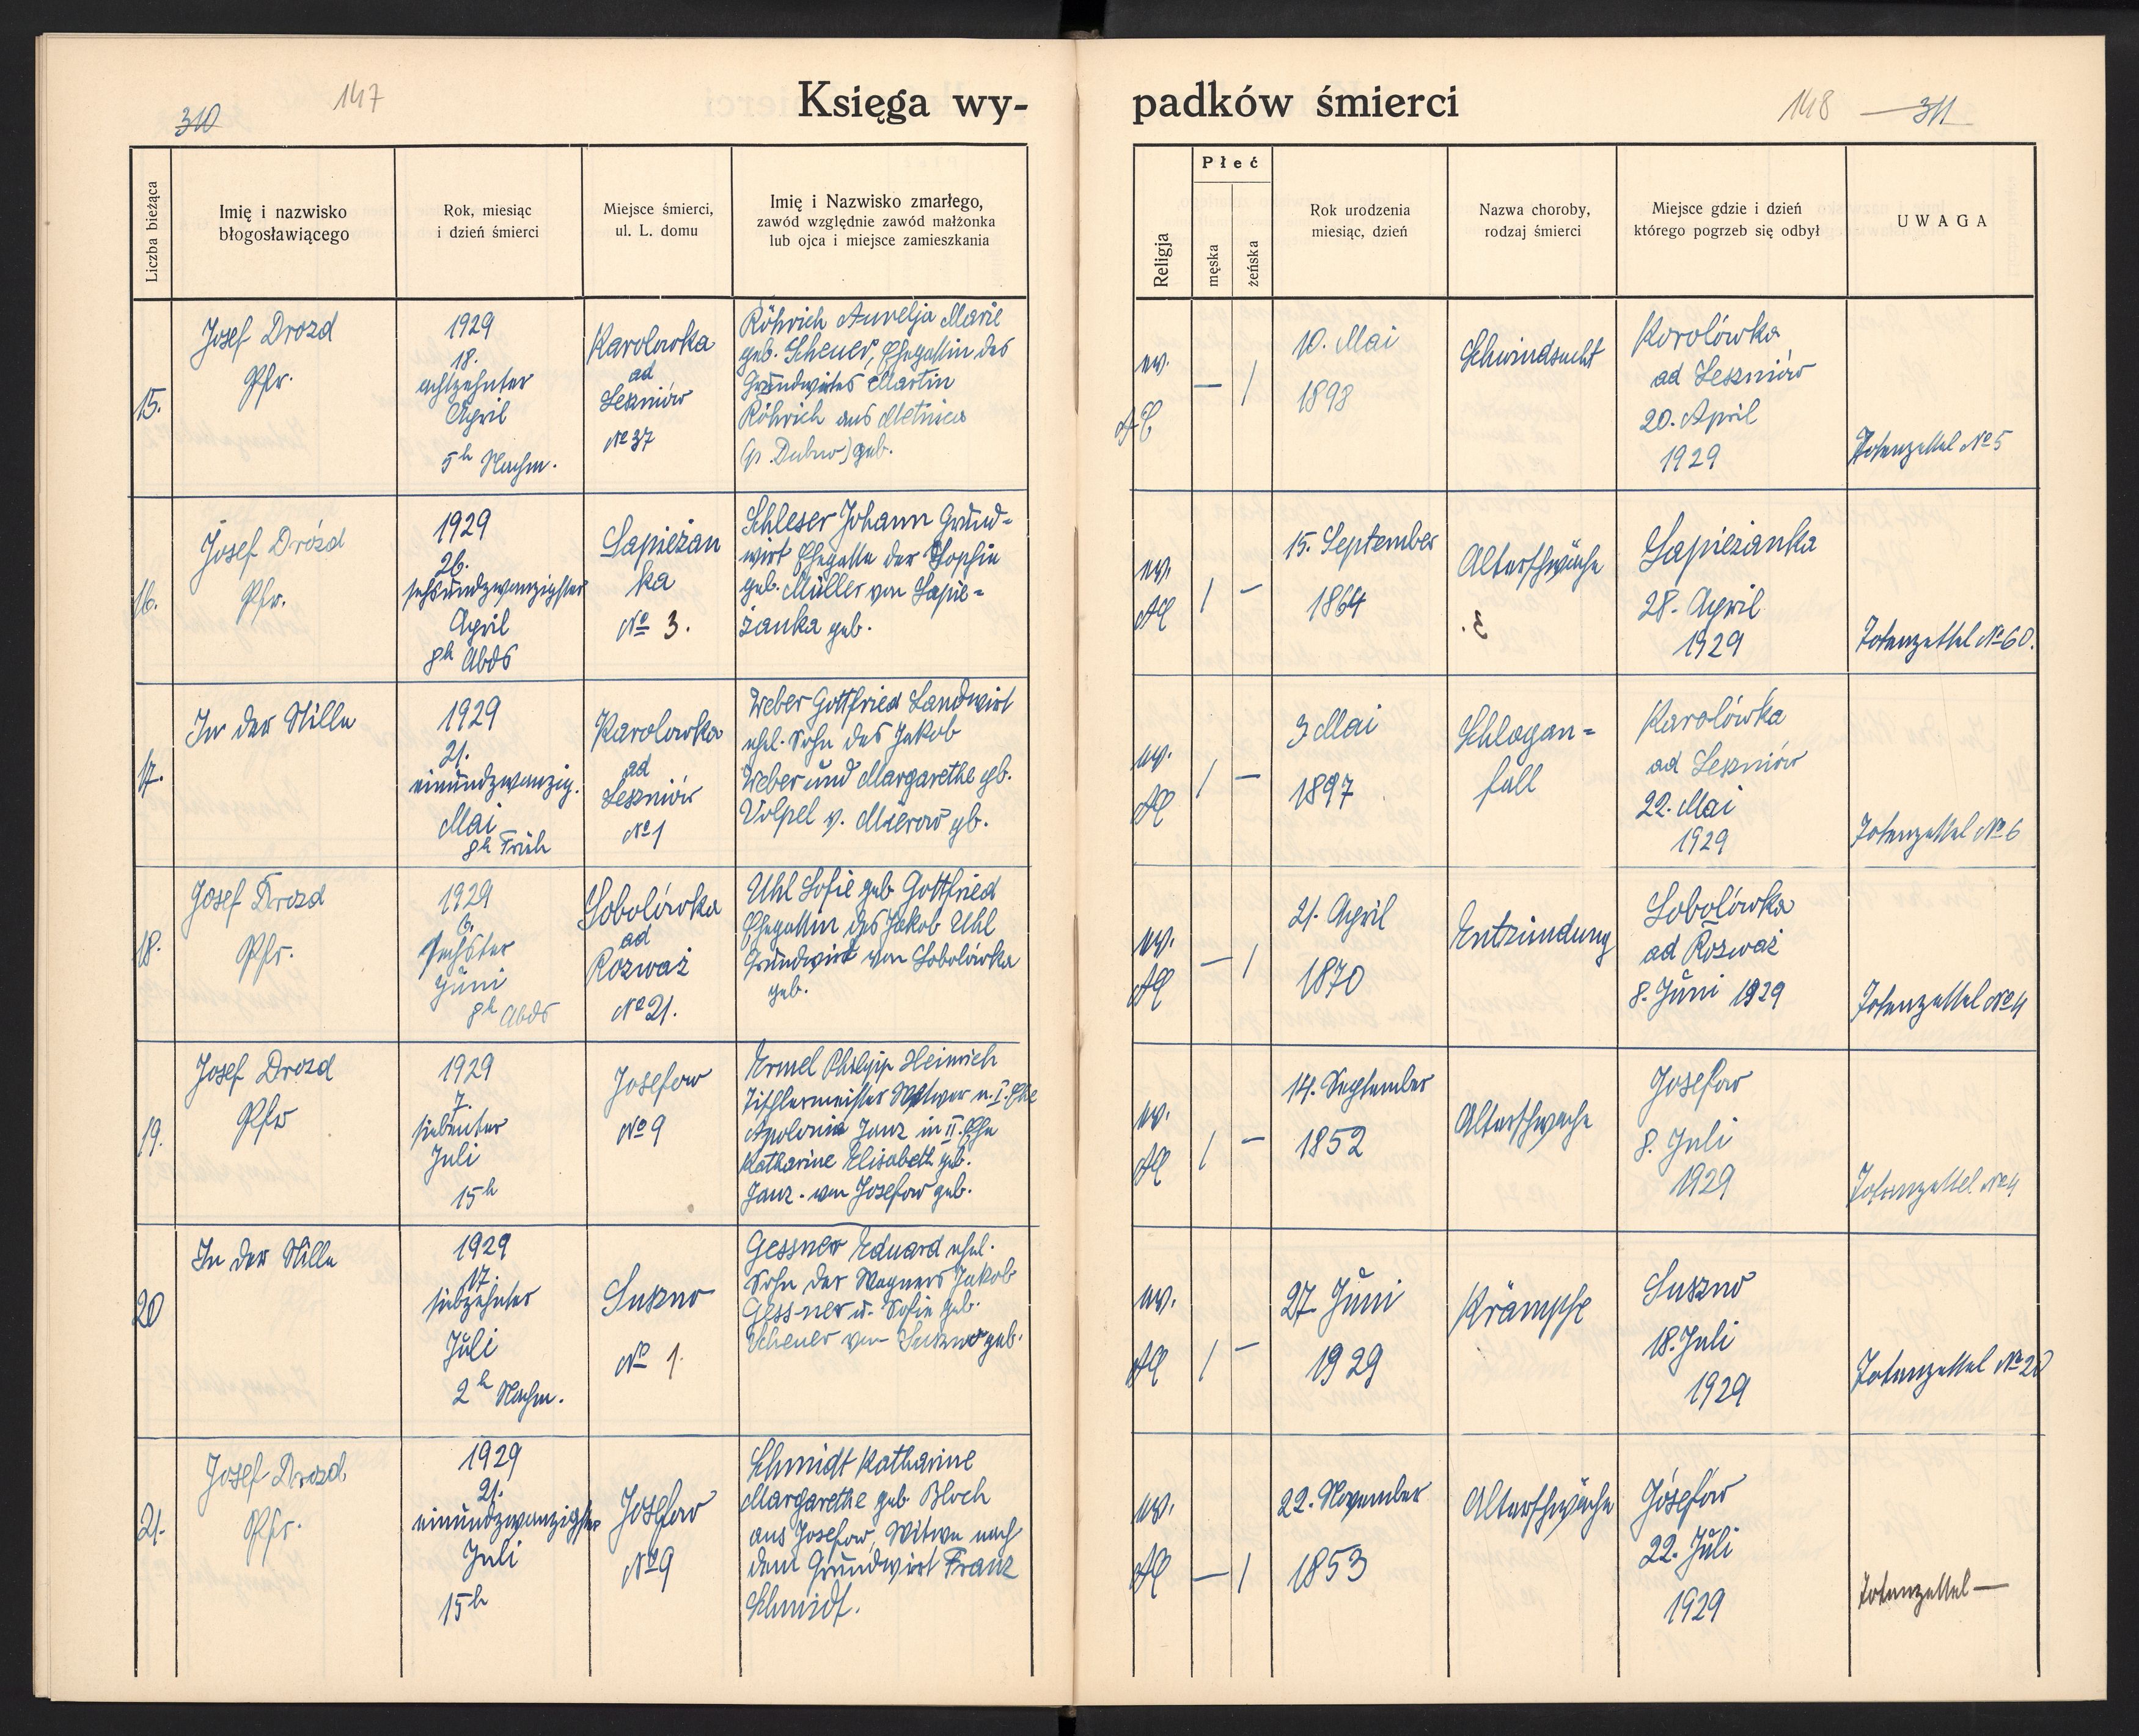 310
147
Księga wy-
padków śmierci
148
311
Liczba bieżąca
Imię i nazwisko
błogosławiącego
Rok, miesiąc
i dzień śmierci
Miejsce śmierci,
ul. L. domu
Imię i Nazwisko zmarłego,
zawód względnie zawód małżonka
lub ojca i miejsce zamieszkania
Religja
Płeć
męska
żeńska
Rok urodzenia
miesiąc, dzień
Nazwa choroby,
rodzaj śmierci
Miejsce gdzie i dzień
którego pogrzeb się odbył
UWAGA
15.
Josef Drozd
Pfr.
1929
18.
achtzehnter
April
5h Nachm.
Karolowka
ad
Leszniów
№ 37
Röhrich Aurelja Marie
geb. Scheuer, Ehegattin des
Grundwirtes Martin
Röhrich aus Mętnica
(p. Dubno) geb.
ev.
AC
— /
10. Mai
1898
Schwindsucht
Karolówka
ad Leszniów
20. April
1929
Totenzettel № 5
16.
Josef Drózd
Pfr.
1929
26.
sechsundzwanzigster
April
8h Abds
Sapieżan
ka
№ 3.
Schleser Johann Grund-
wirt Ehegatte der Sophie
geb. Müller von Sapie-
żanka geb.
ev.
AC
/ —
15. September
1864
Altersschwäche
Sapieżanka
28. April
1929
Totenzettel № 60.
17.
In der Stille
1929
21.
einundzwanzig.
Mai
8h Früh
Karolowka
ad
Leszniów
№ 1
Weber Gottfried Landwirt
ehel. Sohn des Jakob
Weber und Margarethe gb.
Volpel v. Mierow gb.
ev.
AC
/ —
3 Mai
1897
Schlagan-
fall
Karolówka
ad Leszniów
22. Mai
1929
Totenzettel № 6
18.
Josef Drozd
Pfr.
1929
6.
sechster
Juni
8h Abds
Sobolówka
ad
Rozważ
№ 21.
Uhl Sofie geb Gottfried
Ehegattin des Jakob Uhl
Grundwirt von Sobolówka
geb.
ev.
AC
— /
21. April
1870
Entzündung
Sobolówka
ad Rozważ
8. Juni 1929
Totenzettel № 4
19.
Josef Drozd
Pfr
1929
7.
siebenter
Juli
15h
Josefow
№ 9
Ermel Philipp Heinrich
Tischlermeister Witwer n. I. Ehe
Apolonia Janz in II. Ehe
Katharine Elisabeth geb.
Janz. von Josefow geb.
ev.
AC
/ —
14. September
1852
Altersschwache
Josefow
8. Juli
1929
Totenzettel № 4
20
In der Stille
1929
17.
siebzehnter
Juli
2h Nachm.
Suszno
№ 1.
Gessner Eduard ehel.
Sohn der Wagners Jakob
Gessner u. Sofie geb.
Scheuer von Suszno geb.
ev.
AC
/ —
27. Juni
1929
Krämpfe
Suszno
18. Juli
1929
Totenzettel № 20
21.
Josef Drozd
Pfr.
1929
21.
einundzwanzigster
Juli
15h
Josefow
№ 9
Schmidt Katharine
Margarethe geb. Bloch
aus Josefow, Witwe nach
dem Grundwirt Franz
Schmidt.
ev.
AC
— /
22. November
1853
Altersschwäche
Józefów
22. Juli
1929
Totenzettel —